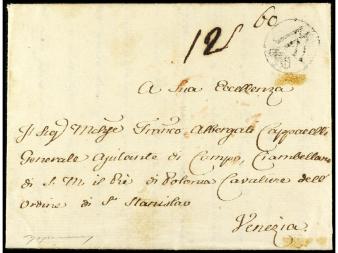 60
12
A Sua Eccellenza
Il Sigr Mchse Franco Albergati Cappacelli
Generale Ajutante di Campo, Ciambellano
di S. M. il Rè di Polonia Cavaliere dell'
Ordine di Sn Stanislao
Venezia